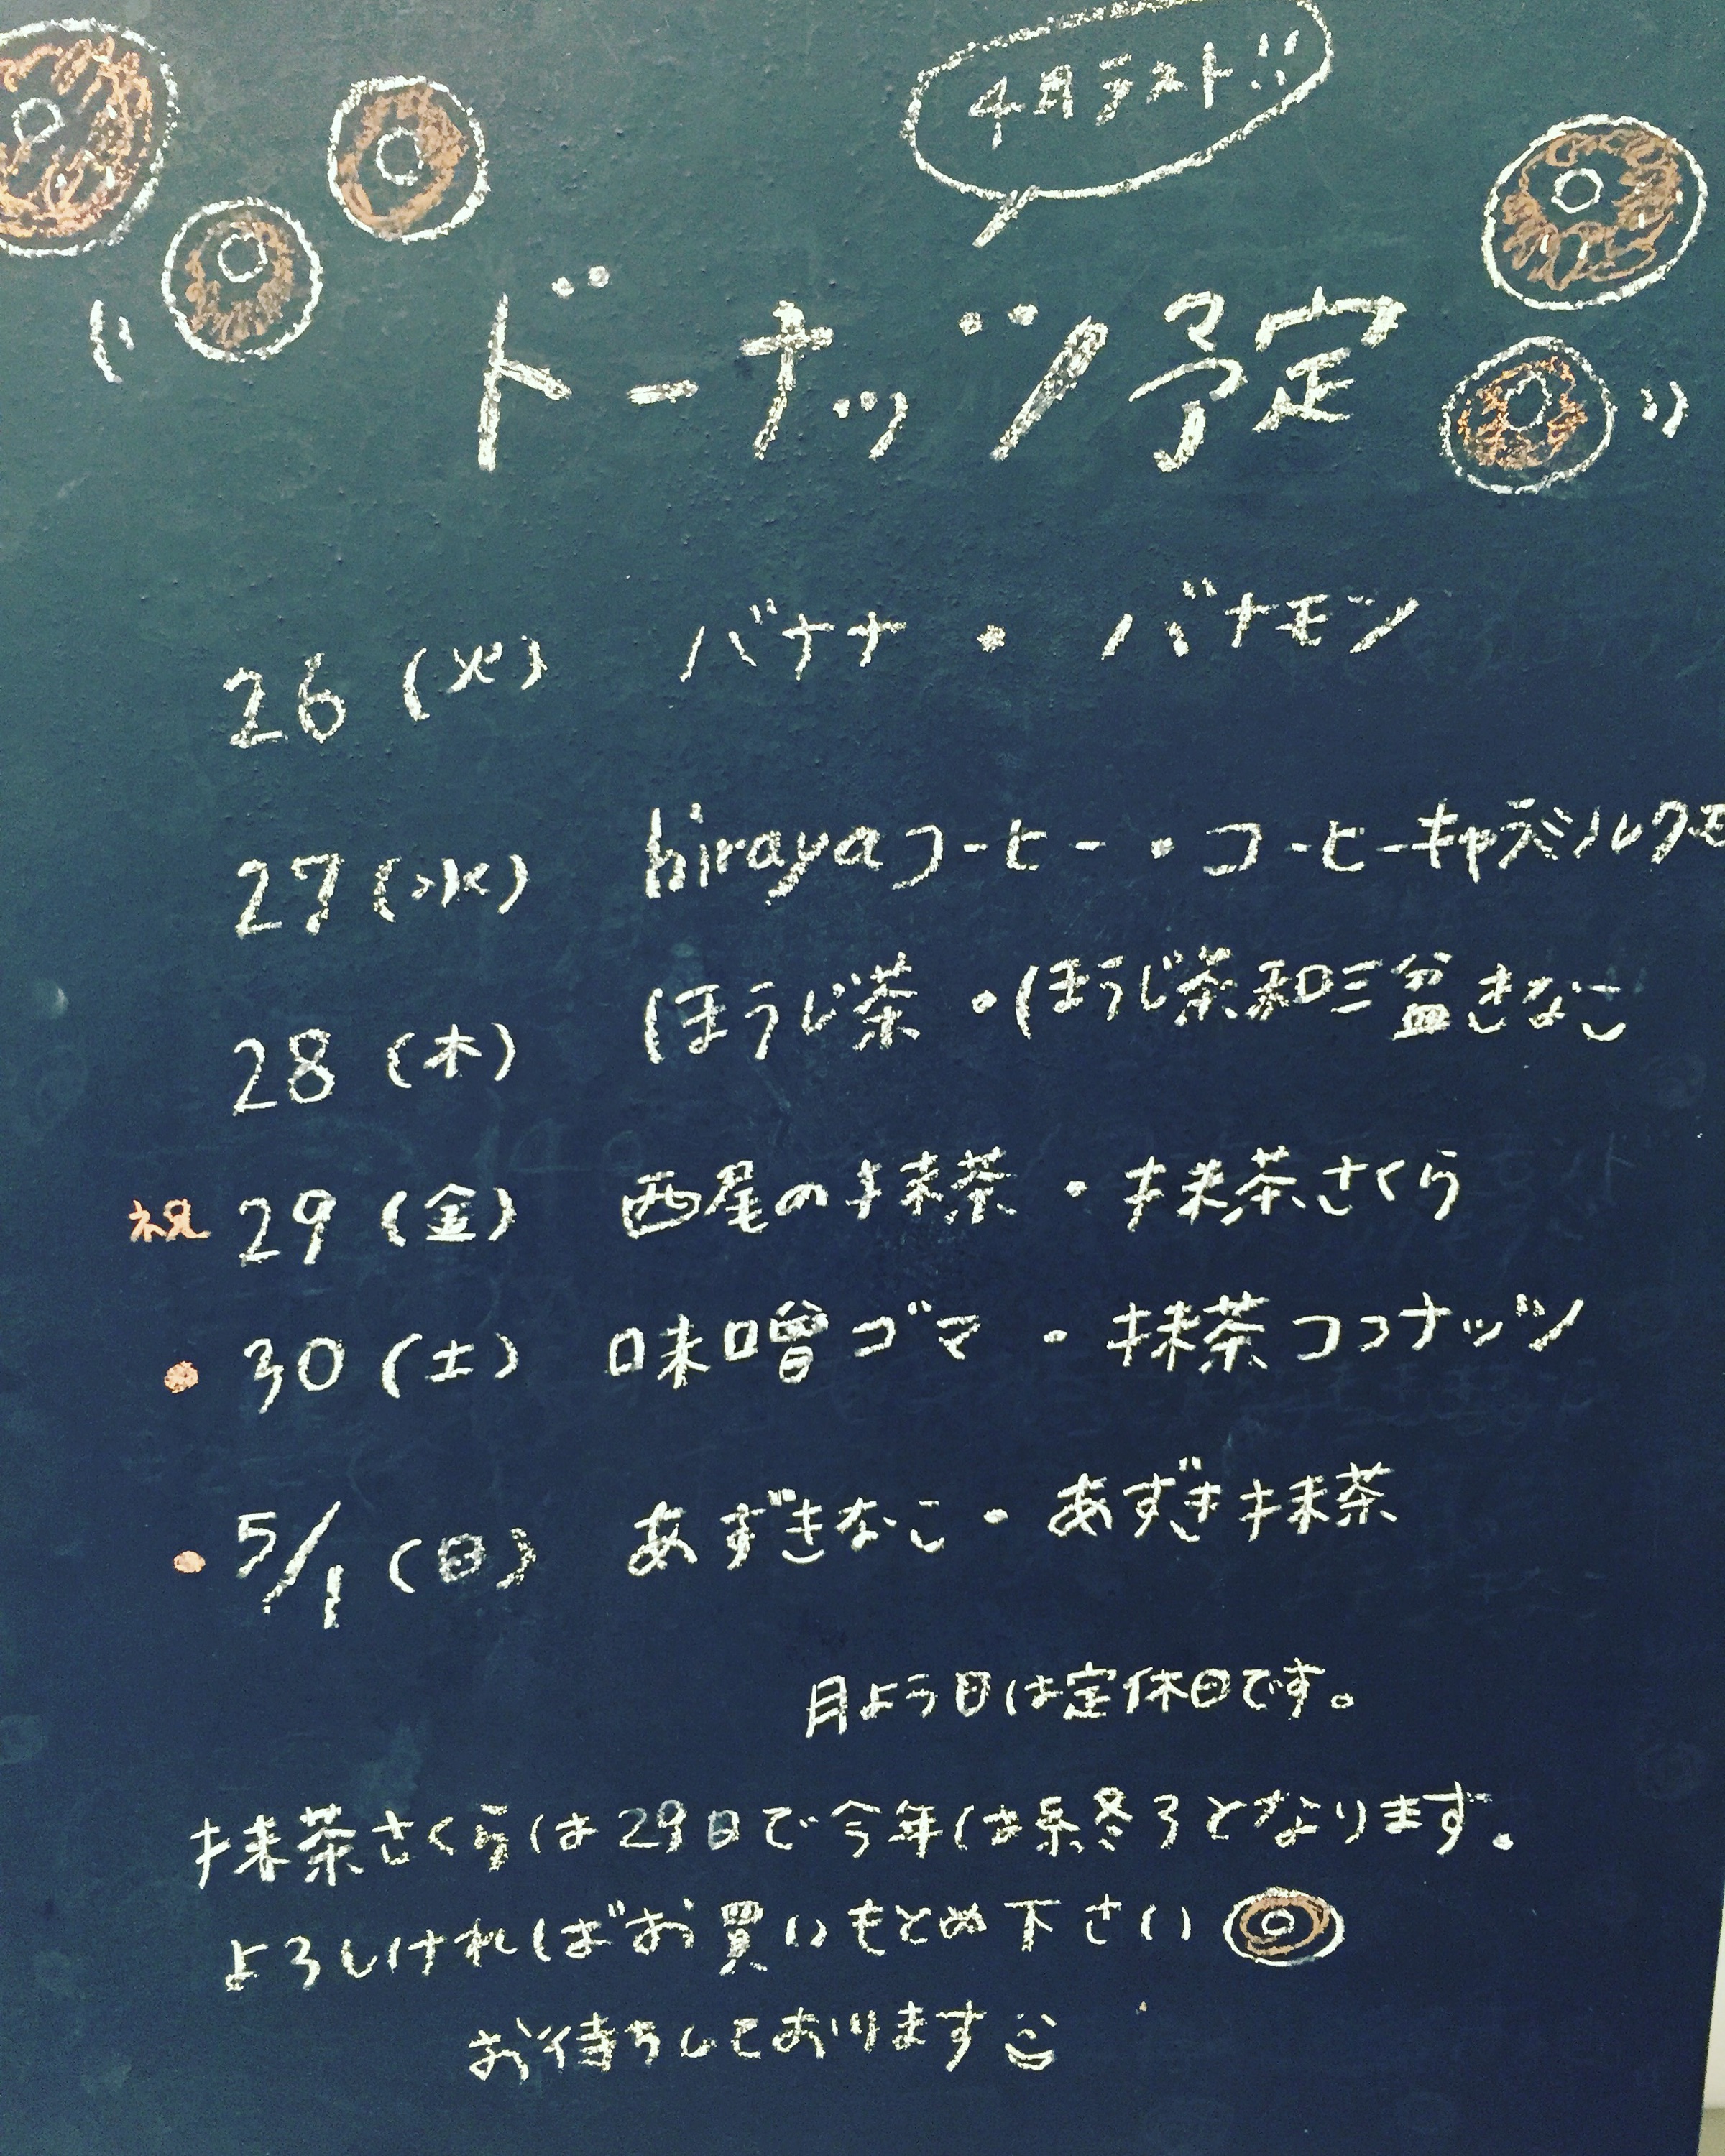 4月ラスト!!
ドーナッツ予定
26(火) バナナ・バナモン
27(水) hirayaコーヒー・コーヒーキャラミルクモ
28(木) ほうじ茶・ほうじ茶和三盆きなこ
祝 29(金) 西尾の抹茶・抹茶さくら
• 30(土) 味噌ゴマ・抹茶ココナッツ
• 5/1(日) あずきなこ・あずき抹茶
月よう日は定休日です。
抹茶さくらは29日で今年は終了となります。
よろしければお買いもとめ下さい
お待ちしております